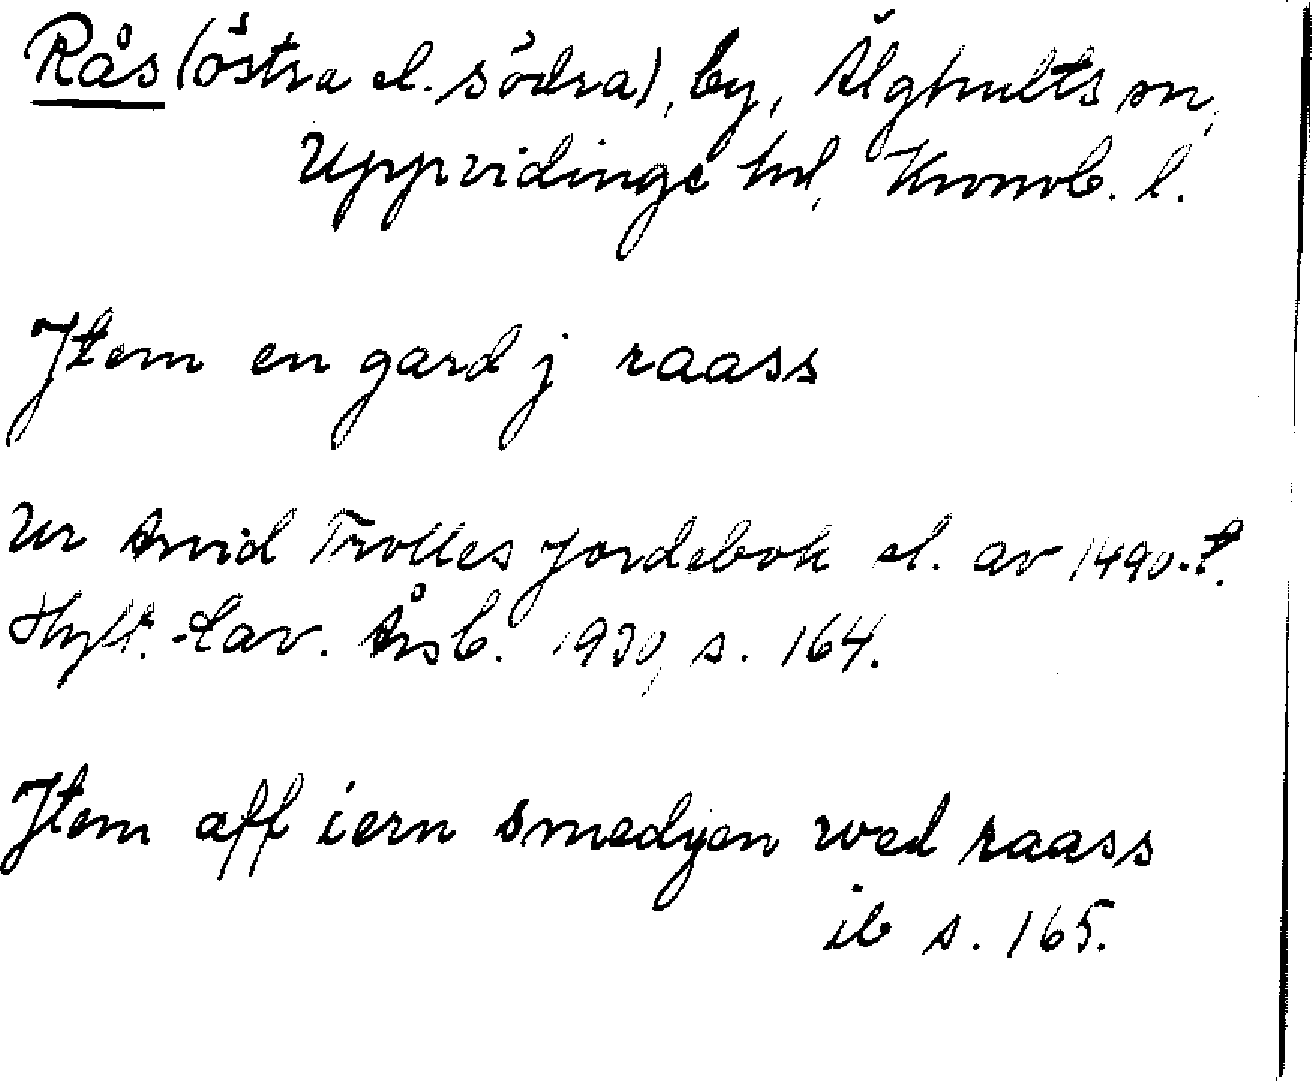 Rås (östra el. södra), by, Älghults sn,
Uppvidinge hd, Kronob. l.
Jtem en gard j raass
Ur Arvid Trolles jordebok el. av 1490-t.
Hylt.-Cav. Årsb. 1930, s. 164.
Jtem aff iern smedyen wed raass
ib s. 165.